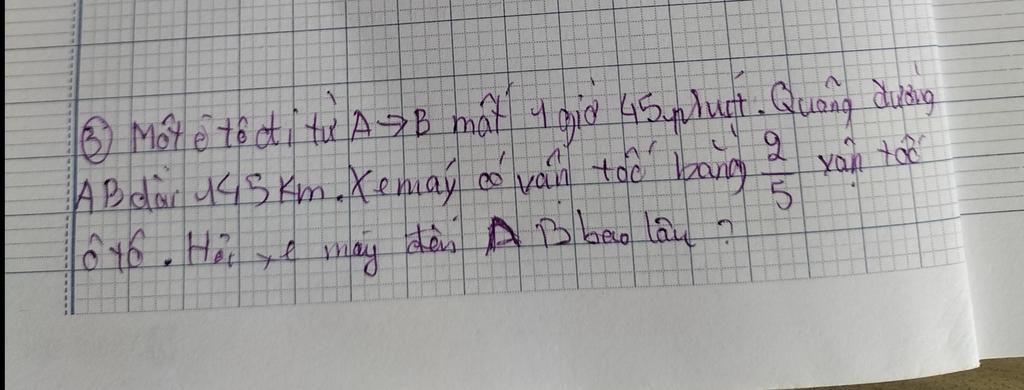 ③ Một ô tô đi từ A → B mất 1 giờ 45 phút. Quãng đường
AB dài 145 Km. Xe máy có vận tốc bằng 2/5 vận tốc
ô tô. Hỏi xe máy đến A B bao lâu ?